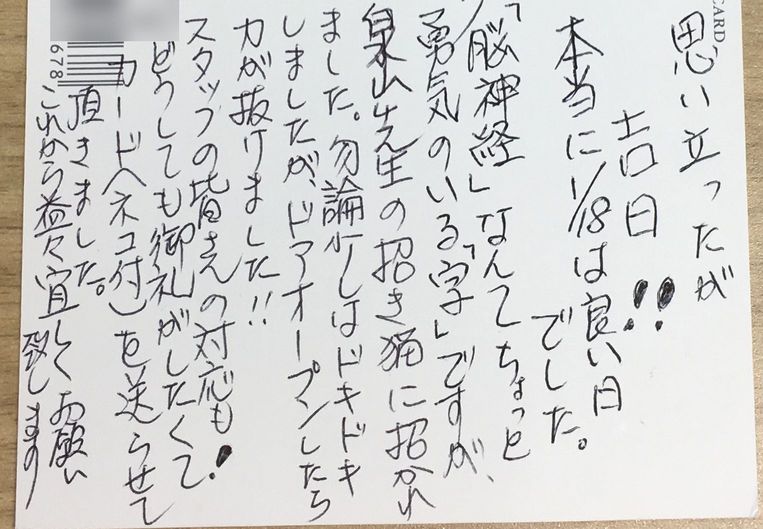 思い立ったが
吉日!!
本当に1/18は良い日
でした。
「脳神経」なんてちょっと
勇気のいる「字」ですが、
泉山先生の招き猫に招かれ
ました。勿論少しはドキドキ
しましたが、ドアオープンしたら
力が抜けました!!
スタッフの皆さんの対応も!
どうしても御礼がしたくて
カード(ネコ付)を送らせて
頂きました。
これから益々宜しくお願い
致します
CARD
678